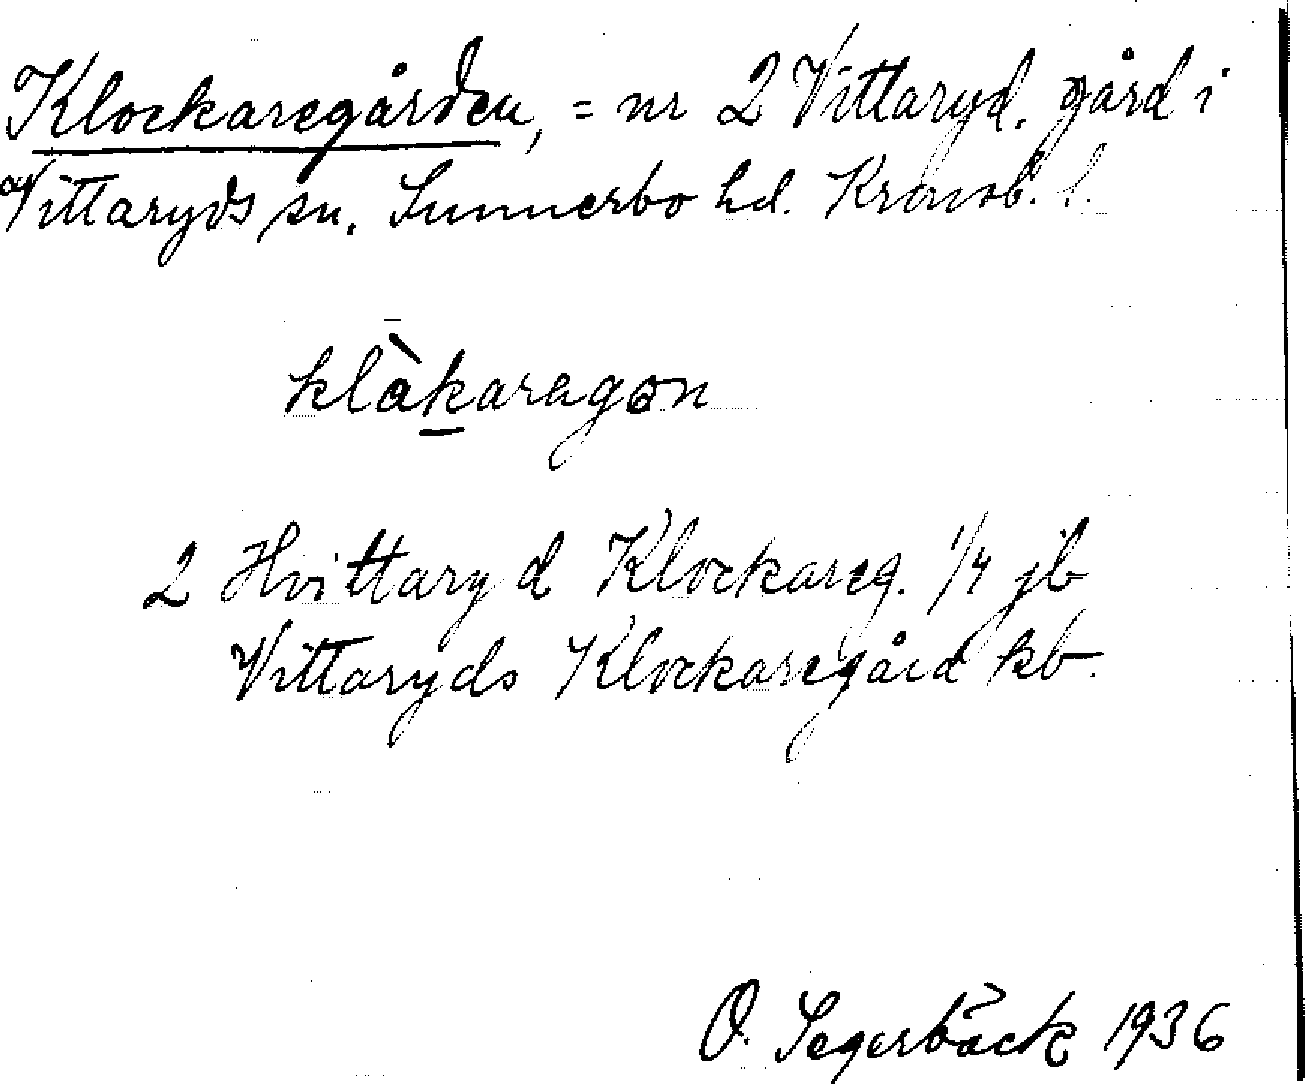 Klockaregården, = nr 2 Vittaryd. gård i
Vittaryds sn. Sunnerbo hd. Kronob. l.
klàkaragon
2 Hvittaryd Klockareg. 1/4 jb
Vittaryds Klockaregård kb.
O. Segerbäck 1936